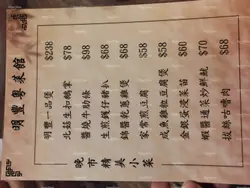 明豐粵菜館
晚市精美小菜
明豐一品煲 $238
北菇生扣鵝掌 $78
醬燒牛肋條 $98
生煎鍋仔豬扒 $68
錦醬乾蔥雞煲 $68
家常煎豆腐 $58
咸魚雞粒豆腐煲 $58
金銀蛋浸菜苗 $60
蝦醬通菜炒鮮魷 $70
拔絲咕嚕肉 $68